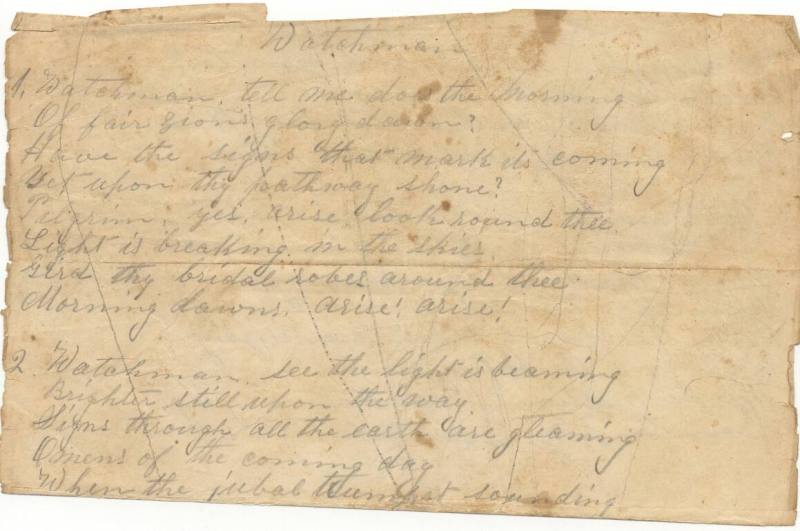 Watchman
1. Watchman, tell me does the Morning
Of fair Zion's glory dawn?
Have the signs that mark its coming
Yet upon thy pathway shone?
Pilgrim, yes, arise look round thee
Light is breaking in the skies
Gird thy bridal robes around thee
Morning dawns, arise! arise!
2. Watchman, see the light is beaming
Brighter still upon the way
Signs through all the earth are gleaming
Omens of the coming day
When the jubal trumpet sounding